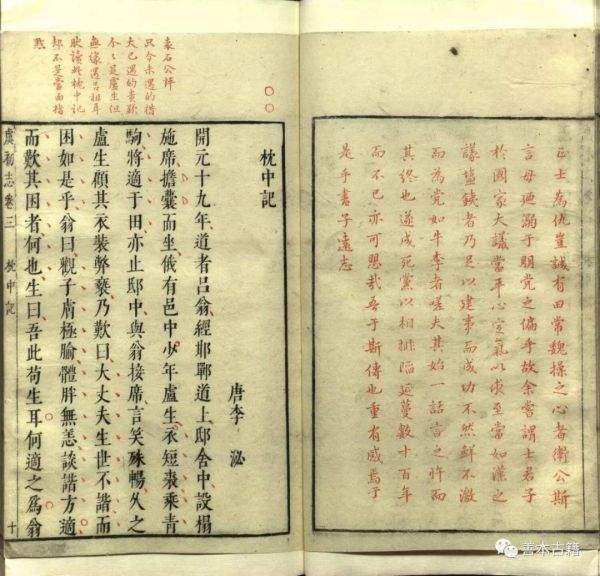 正士為仇豈誠有田常魏操之心者衛公斯
言毋廼溺于朋党之偏乎故余嘗謂士君子
於國家大議當平心定氣以求至當如漢之
議塩鉄者乃足以建事而成功不然鮮不激
而為党如牛李者嗟夫其始一話言之忤而
其終也遂成死黨以相排陥延蔓數十百年
而不已亦可悲哉吾于斯傳也重有感焉于
是乎書子遠志
袁石公評
只今未遇的措
大已遇的貴
个〻是盧生但
無緣遇呂祖耳
讀終枕中記
却不是當面指
枕中記
唐李泌
開元十九年道者呂翁經邯鄲道上邸舍中設榻
施席擔囊而坐俄有邑中少年盧生衣短裘乘青
駒將適于田亦止邸中與翁接席言笑殊暢久之
盧生顧其衣裝弊褻乃歎曰大丈夫生世不諧而
困如是乎翁曰觀子膚極腧體胖無恙談諧方適
而歎其困者何也生曰吾此苟生耳何適之爲翁
虞初志卷三 枕中記 十
善本古籍